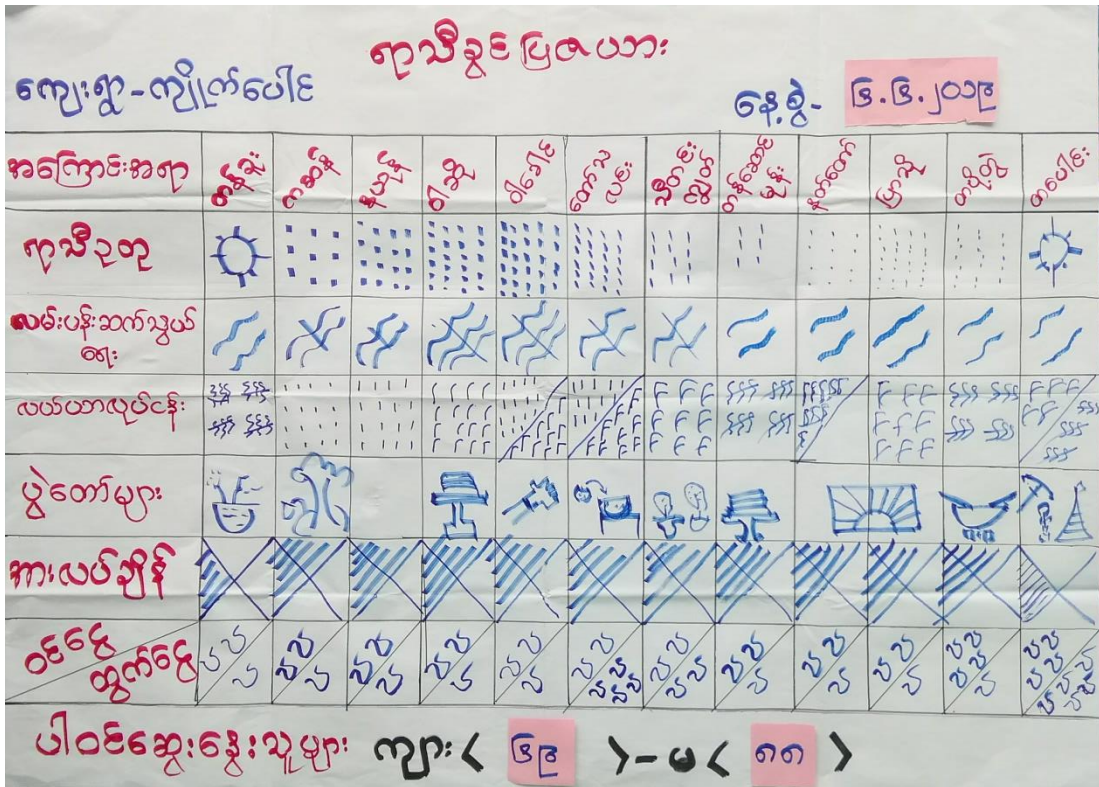 ရာသီခွင်ပြဇယား
ကျေးရွာ-ကျိုက်ပေါင်
နေ့စွဲ- ၆.၆.၂၀၁၉
အကြောင်းအရာ တန်ခူး ကဆုန် နယုန် ဝါဆို ဝါခေါင် တော်သလင်း သီတင်းကျွတ် တန်ဆောင်မုန်း နတ်တော် ပြာသို တပို့တွဲ တပေါင်း
ရာသီဥတု
လမ်းပန်းဆက်သွယ်ရေး
လယ်ယာလုပ်ငန်း
ပွဲတော်များ
အားလပ်ချိန်
ဝင်ငွေ
ထွက်ငွေ
ပါဝင်ဆွေးနွေးသူများ ကျား < ၆၉ > - မ < ၈၈ >